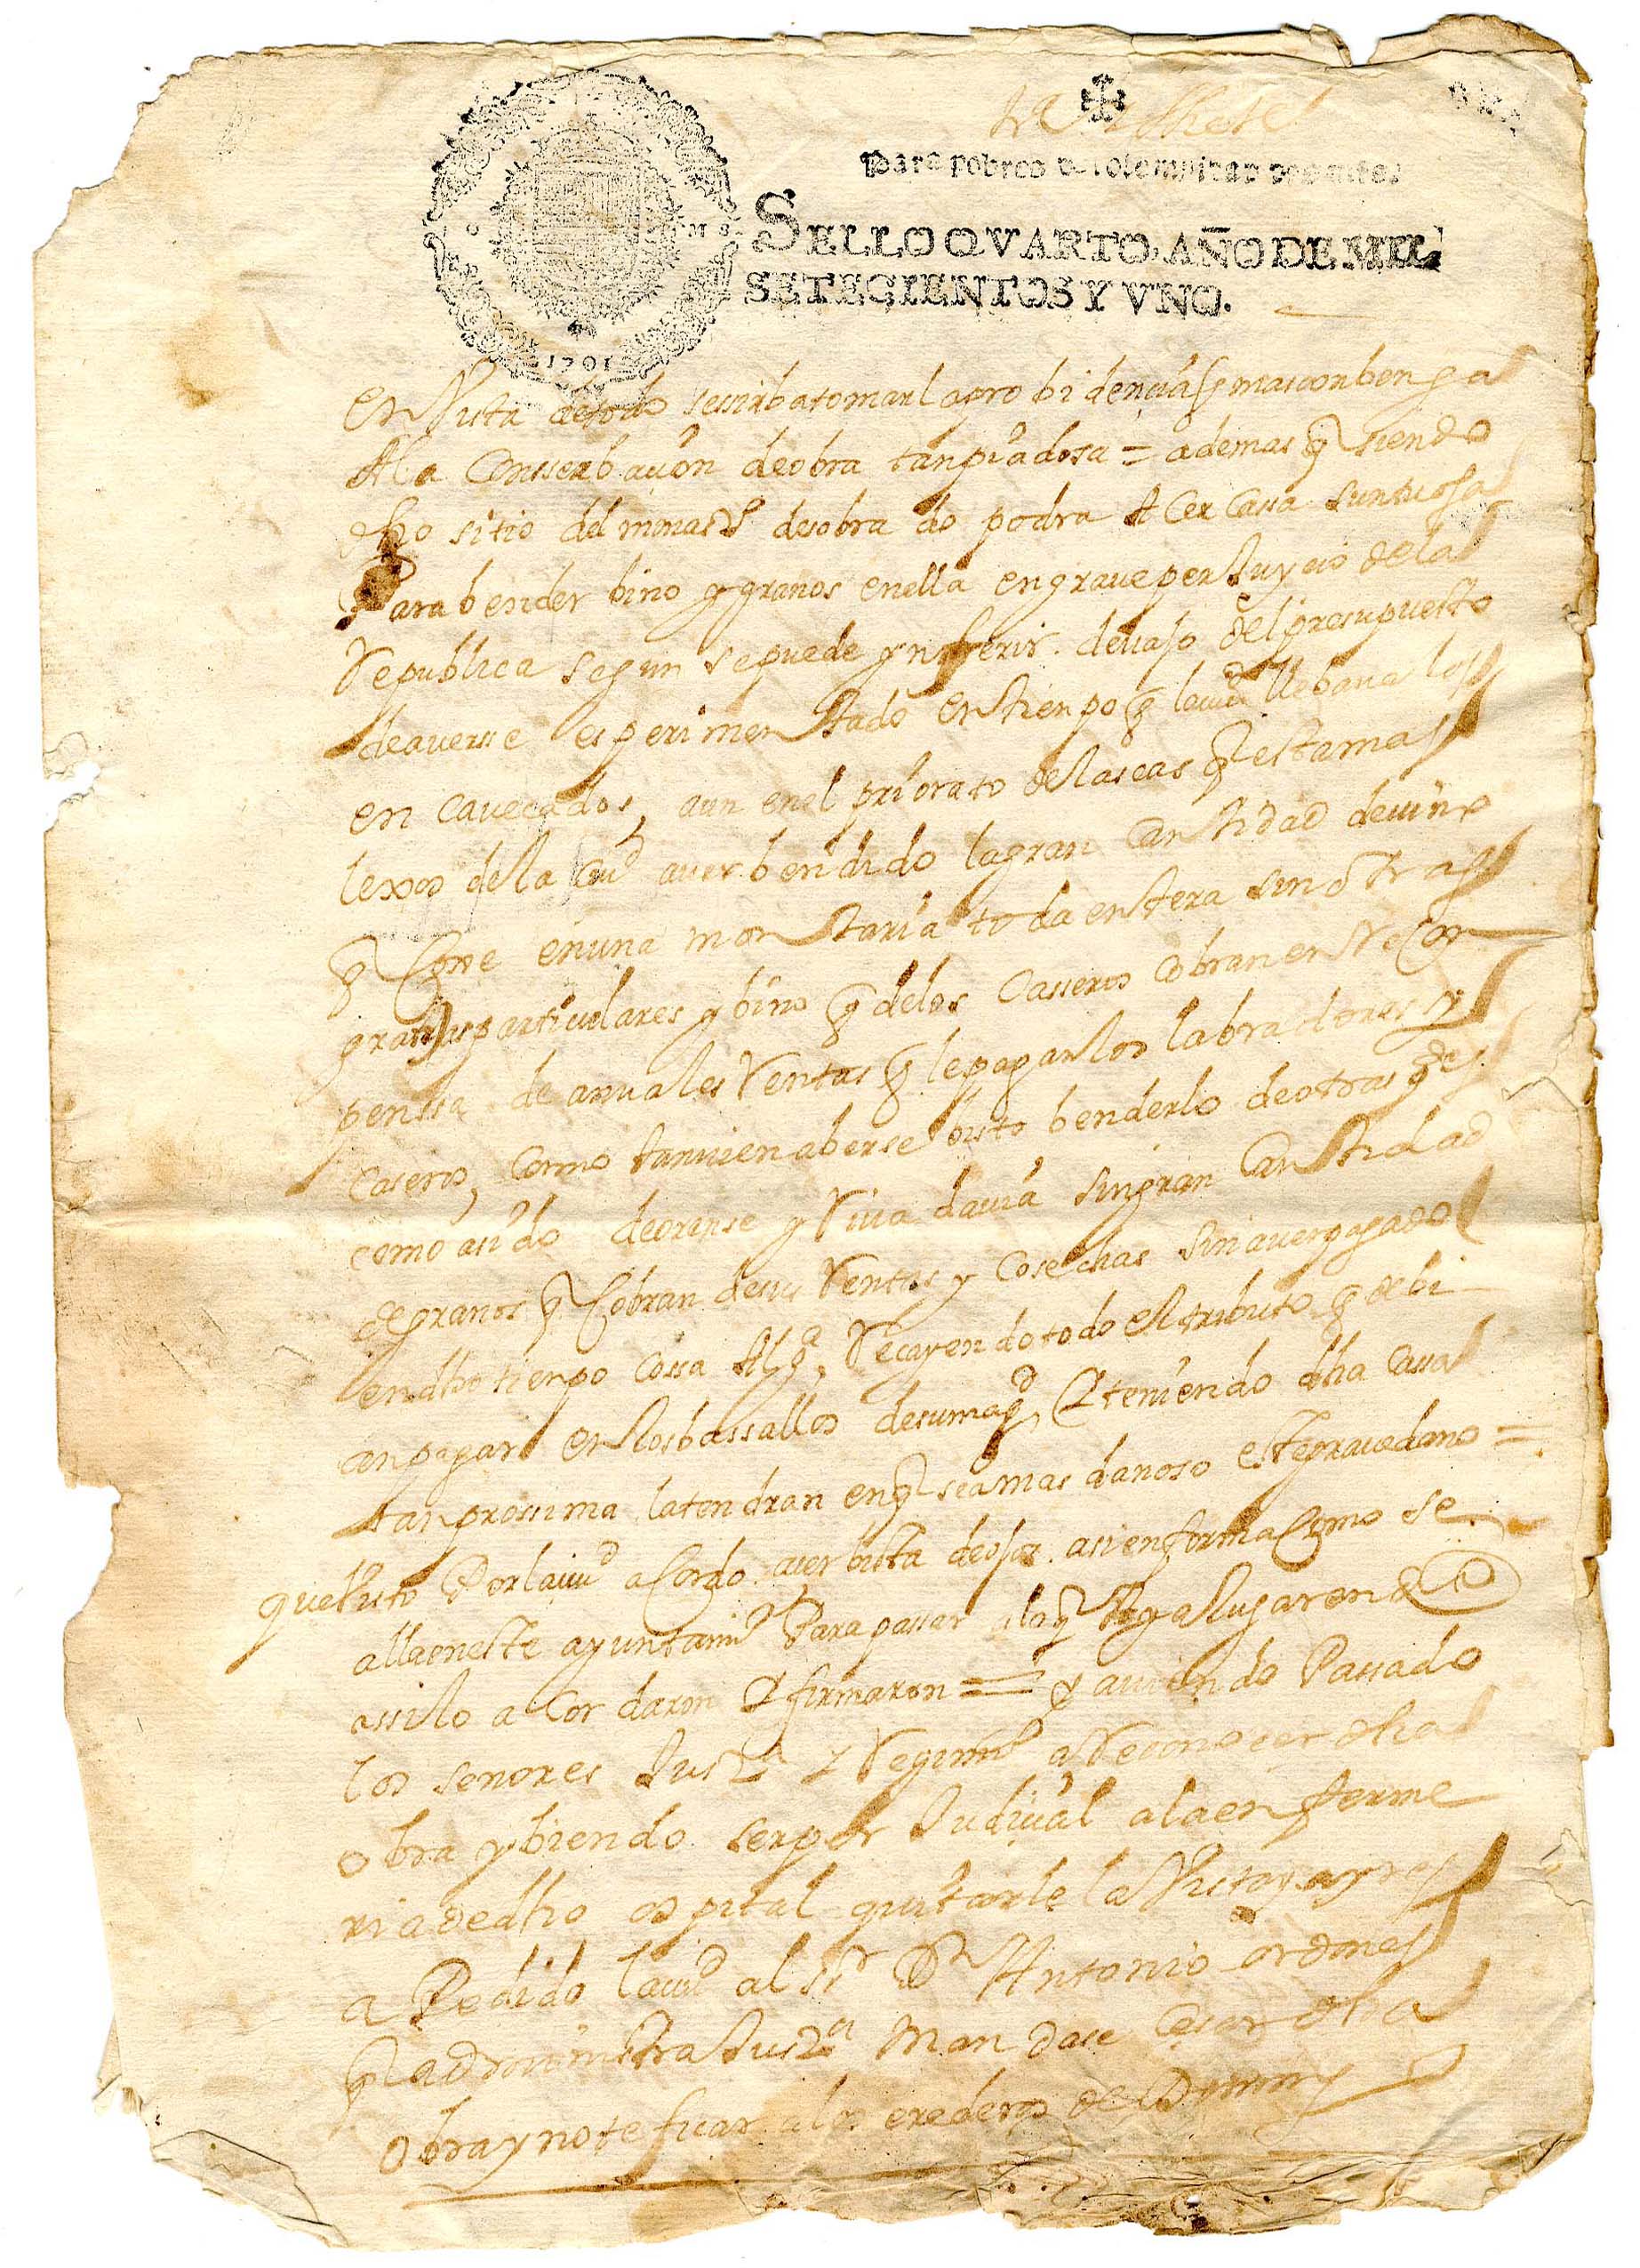 para pobres de solemnidad
SELLO QVARTO, AÑO DE MIL
SETECIENTOS Y VNO.
1701
en Vista de todo se sirba tomar la probidencia q mas conbenga
A la Consserbacion de obra tan piadosa = ademas q siendo
dho sitio del monasto de sobrado podra Acer Cassa suntuosa
Para bender bino y granos en ella en grave perJuycio de la
Republica segun se puede ynferir devajo del presupuesto
de aversse esperimentado en tienpo q la ciud llebava los
en caveçados, aun en el priorato de las cas q esta mas
lexos de la Ciud aver bendido la gran Cantidad de vino
q Coxe en una montaria toda entera sin otras
granjas particulares y bino q de los Casseros Cobran en Recon
penssa de anuales Rentas q le pagan los labradores y
caseros, como tanvien aberse bisto benderlo de otras ptes
como a sido de orense y Riva davia sin gran Cantidad
de granos q Cobran de sus Rentas y Cosechas sin aver pagado
en dho tienpo Cossa Alga, Recayendo todo el tributo q debi
an pagar en los bassallos de su magd, Y teniendo dha Cassa
tan prossima la tendran en q sea mas danoso este grave dano =
que Visto Por la ciud acordo aver bista de ojos asi en forma Como se
alla en este ayuntamto Para passar a lo q aya lugar en do
assi lo acordaron Y firmaron = Y aviendo Passado
los senores Justa Y Regimto a Reconocer dha
obra y biendo ser perJudicial a la enferme
ria de dho ospital quitarle la Vista y ayres
a Pedido la ciud al sr Dn Antonio ordones
q administra Justa Mandase Cesar dha
obra y noteficar a los erederos de Domingo